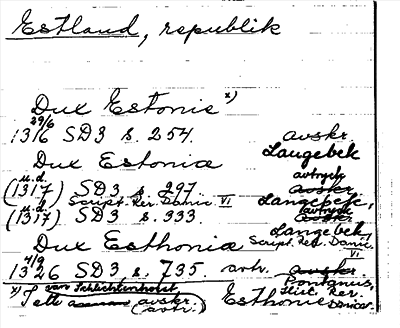 Estland, republik
Dux Estonie x)
29/6
1316 SD3 s. 254. avskr.
Langebek
Dux Estonia
u.d. avtryck
(1317) SD3 s. 297. avskr.
Script. Rer. Danic. VI Langebek,
u.d. avtryck
(1317) SD3 s. 333. avskr.
Langebek,
Dux Esthonia Script. Rer. Danic.
VI
4/9
1326 SD3, s. 735. avtr. avskr.
Pontanus,
van Schlichtenhorst Hist. Rer.
x) I ett avskr. Esthonie Danicar.
(avtr.)